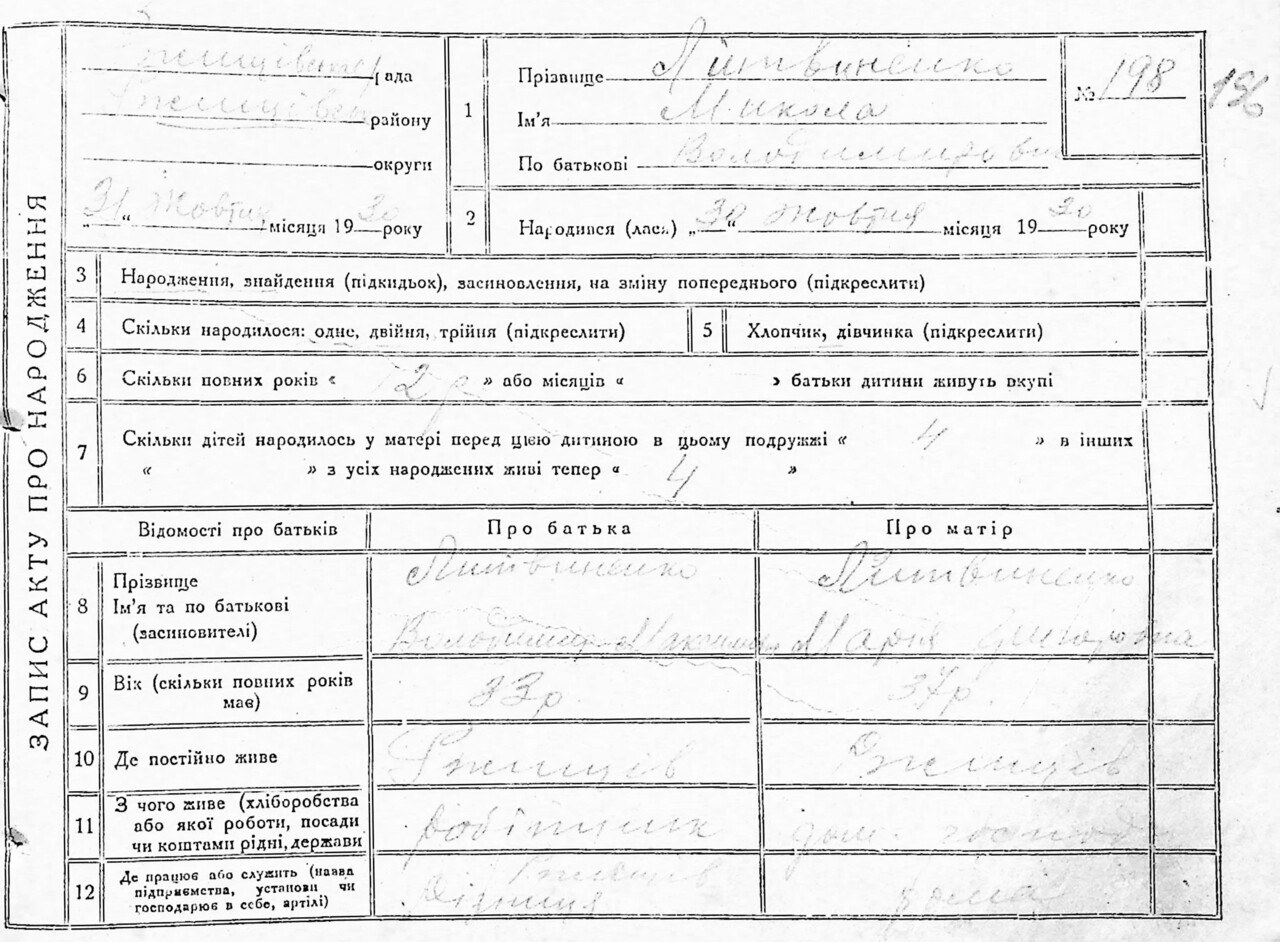 ЗАПИС АКТУ ПРО НАРОДЖЕННЯ
Ржищівська рада
Ржищівськ району
округи
„31“ Жовтня місяця 1930 року
1
Прізвище Литвиненко
Ім'я Микола
По батькові Володимирович
№ 198
196
2
Народився (лася) „30“ Жовтня місяця 1930 року
3 Народження, знайдення (підкидьок), засиновлення, на зміну попереднього (підкреслити)
4 Скільки народилося: одне, двійня, трійня (підкреслити)
5 Хлопчик, дівчинка (підкреслити)
6 Скільки повних років « 12 р » або місяців « » батьки дитини живуть вкупі
7 Скільки дітей народилось у матері перед цією дитиною в цьому подружжі « 4 » в інших
« » з усіх народжених живі тепер « 4 »
Відомості про батьків Про батька Про матір
8 Прізвище
Ім'я та по батькові
(засиновителі)
Литвиненко
Володимир
Литвиненко
Марія Григоровна
9 Вік (скільки повних років
має)
33р
37р.
10 Де постійно живе Ржищів Ржищів
11 З чого живе (хліборобства
або якої роботи, посади
чи коштами рідні, держави
робітник
дом. господ
12 Де працює або служить (назва
підприємства, установи чи
господарює в себе, артілі)
Ржищів
дома